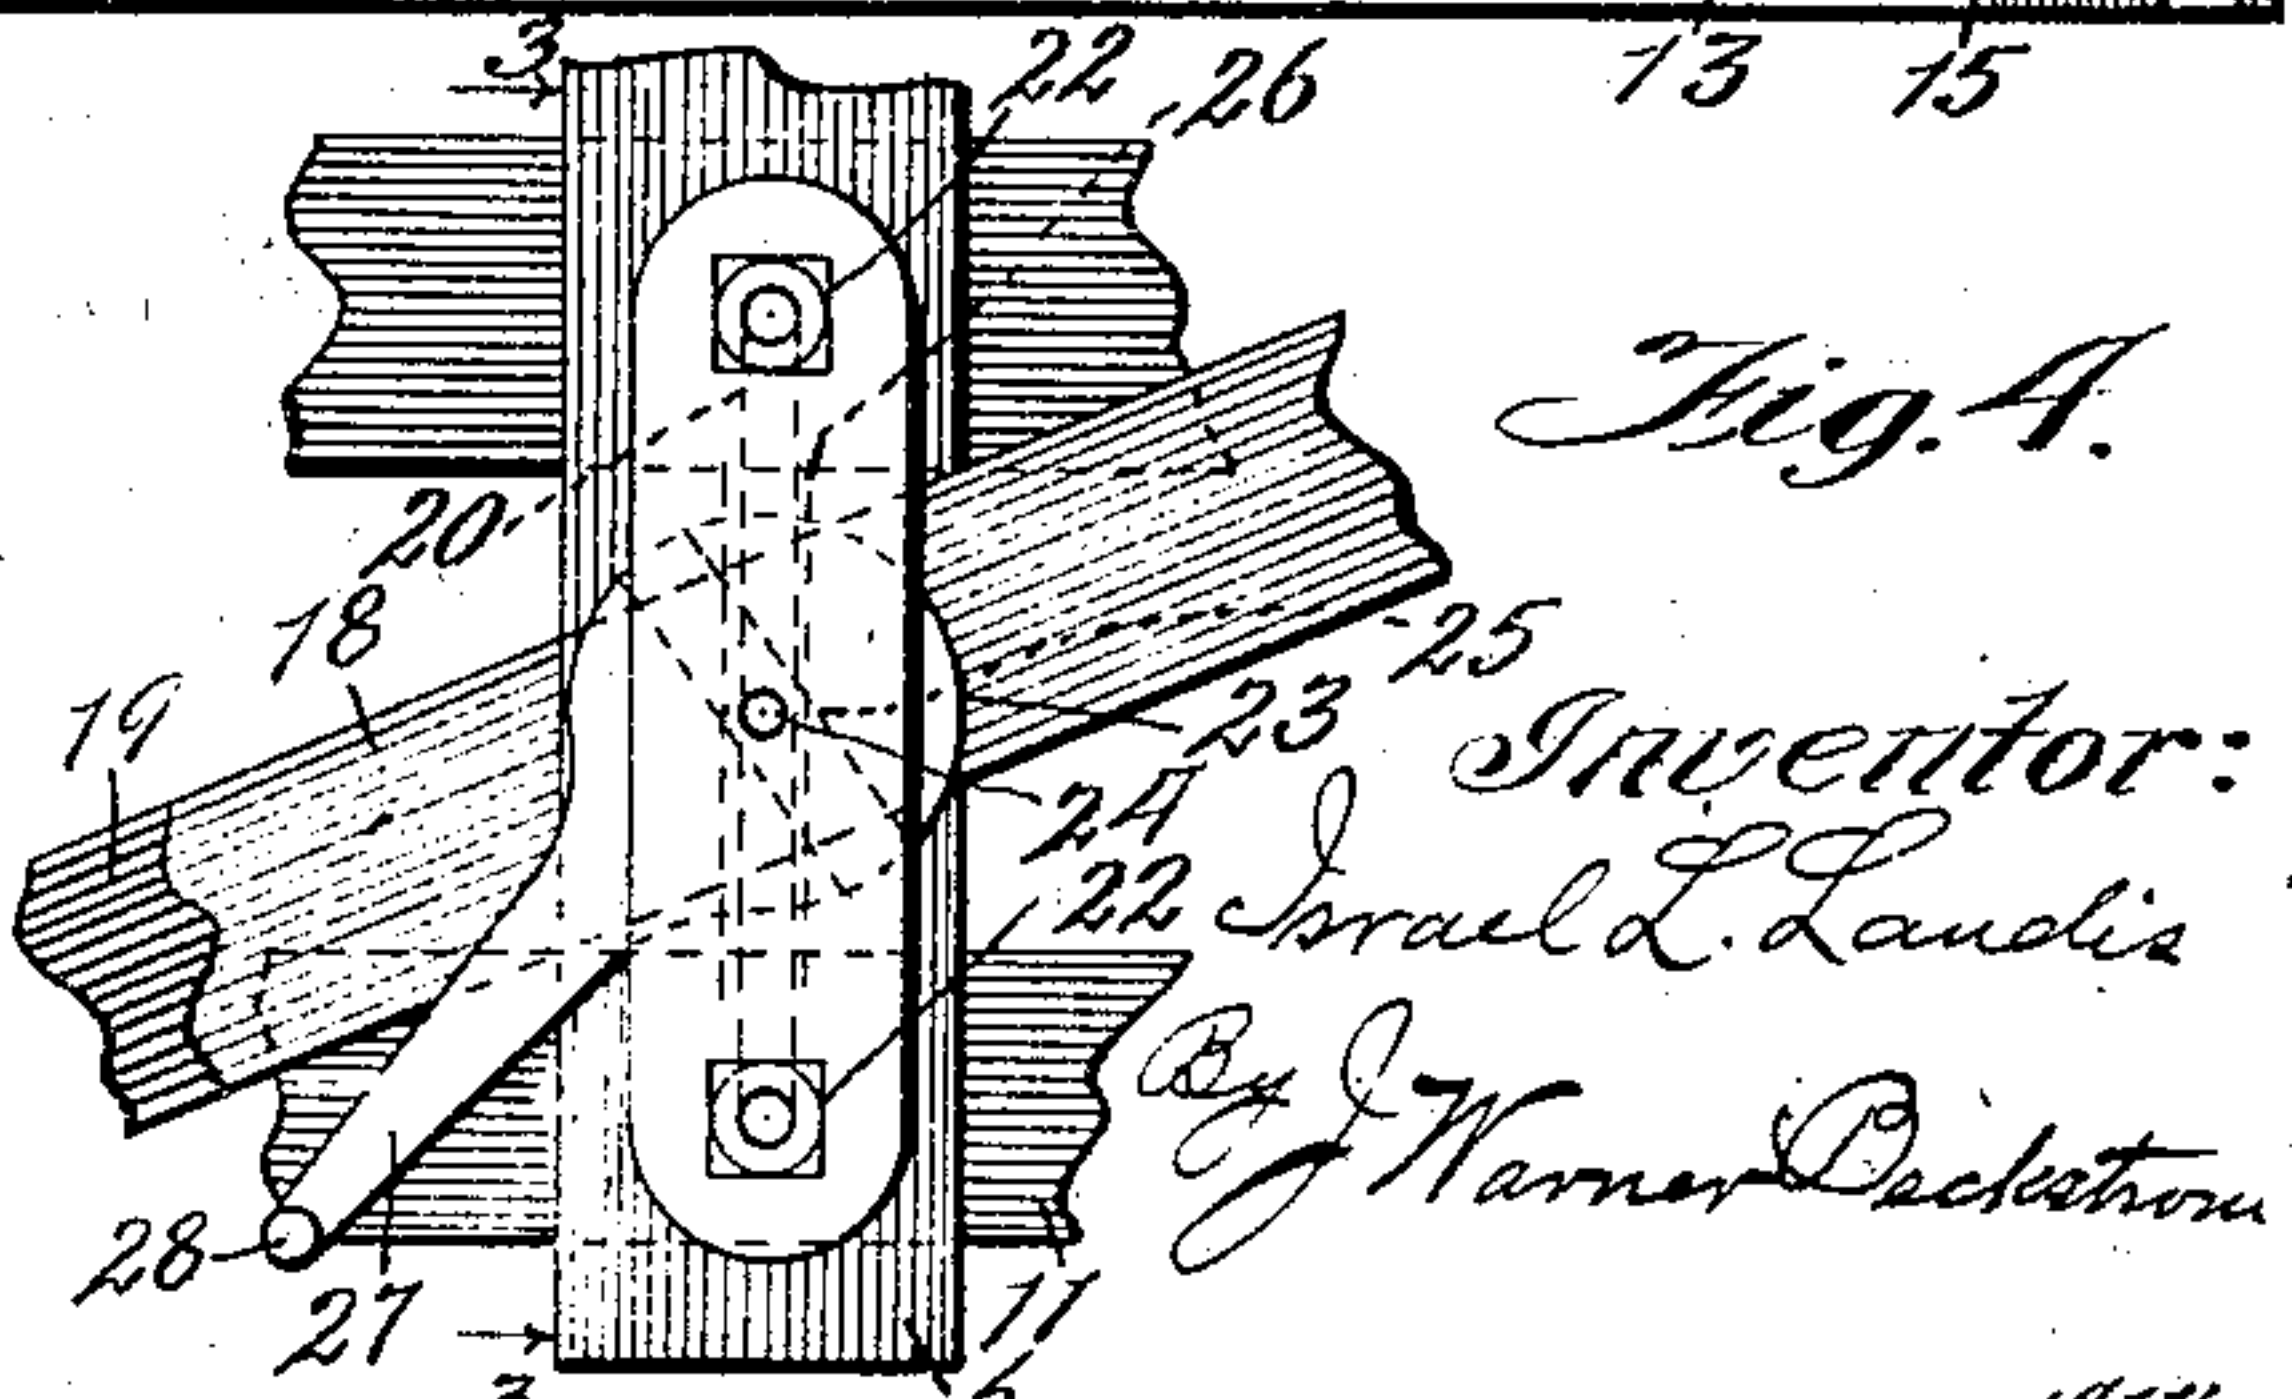 3 22 26 13 15
Fig. 4.
20
18
19
25
23
24
22
Inventor:
Israel L. Landis
By J Warner Beckstrom
28
27
11
3 6